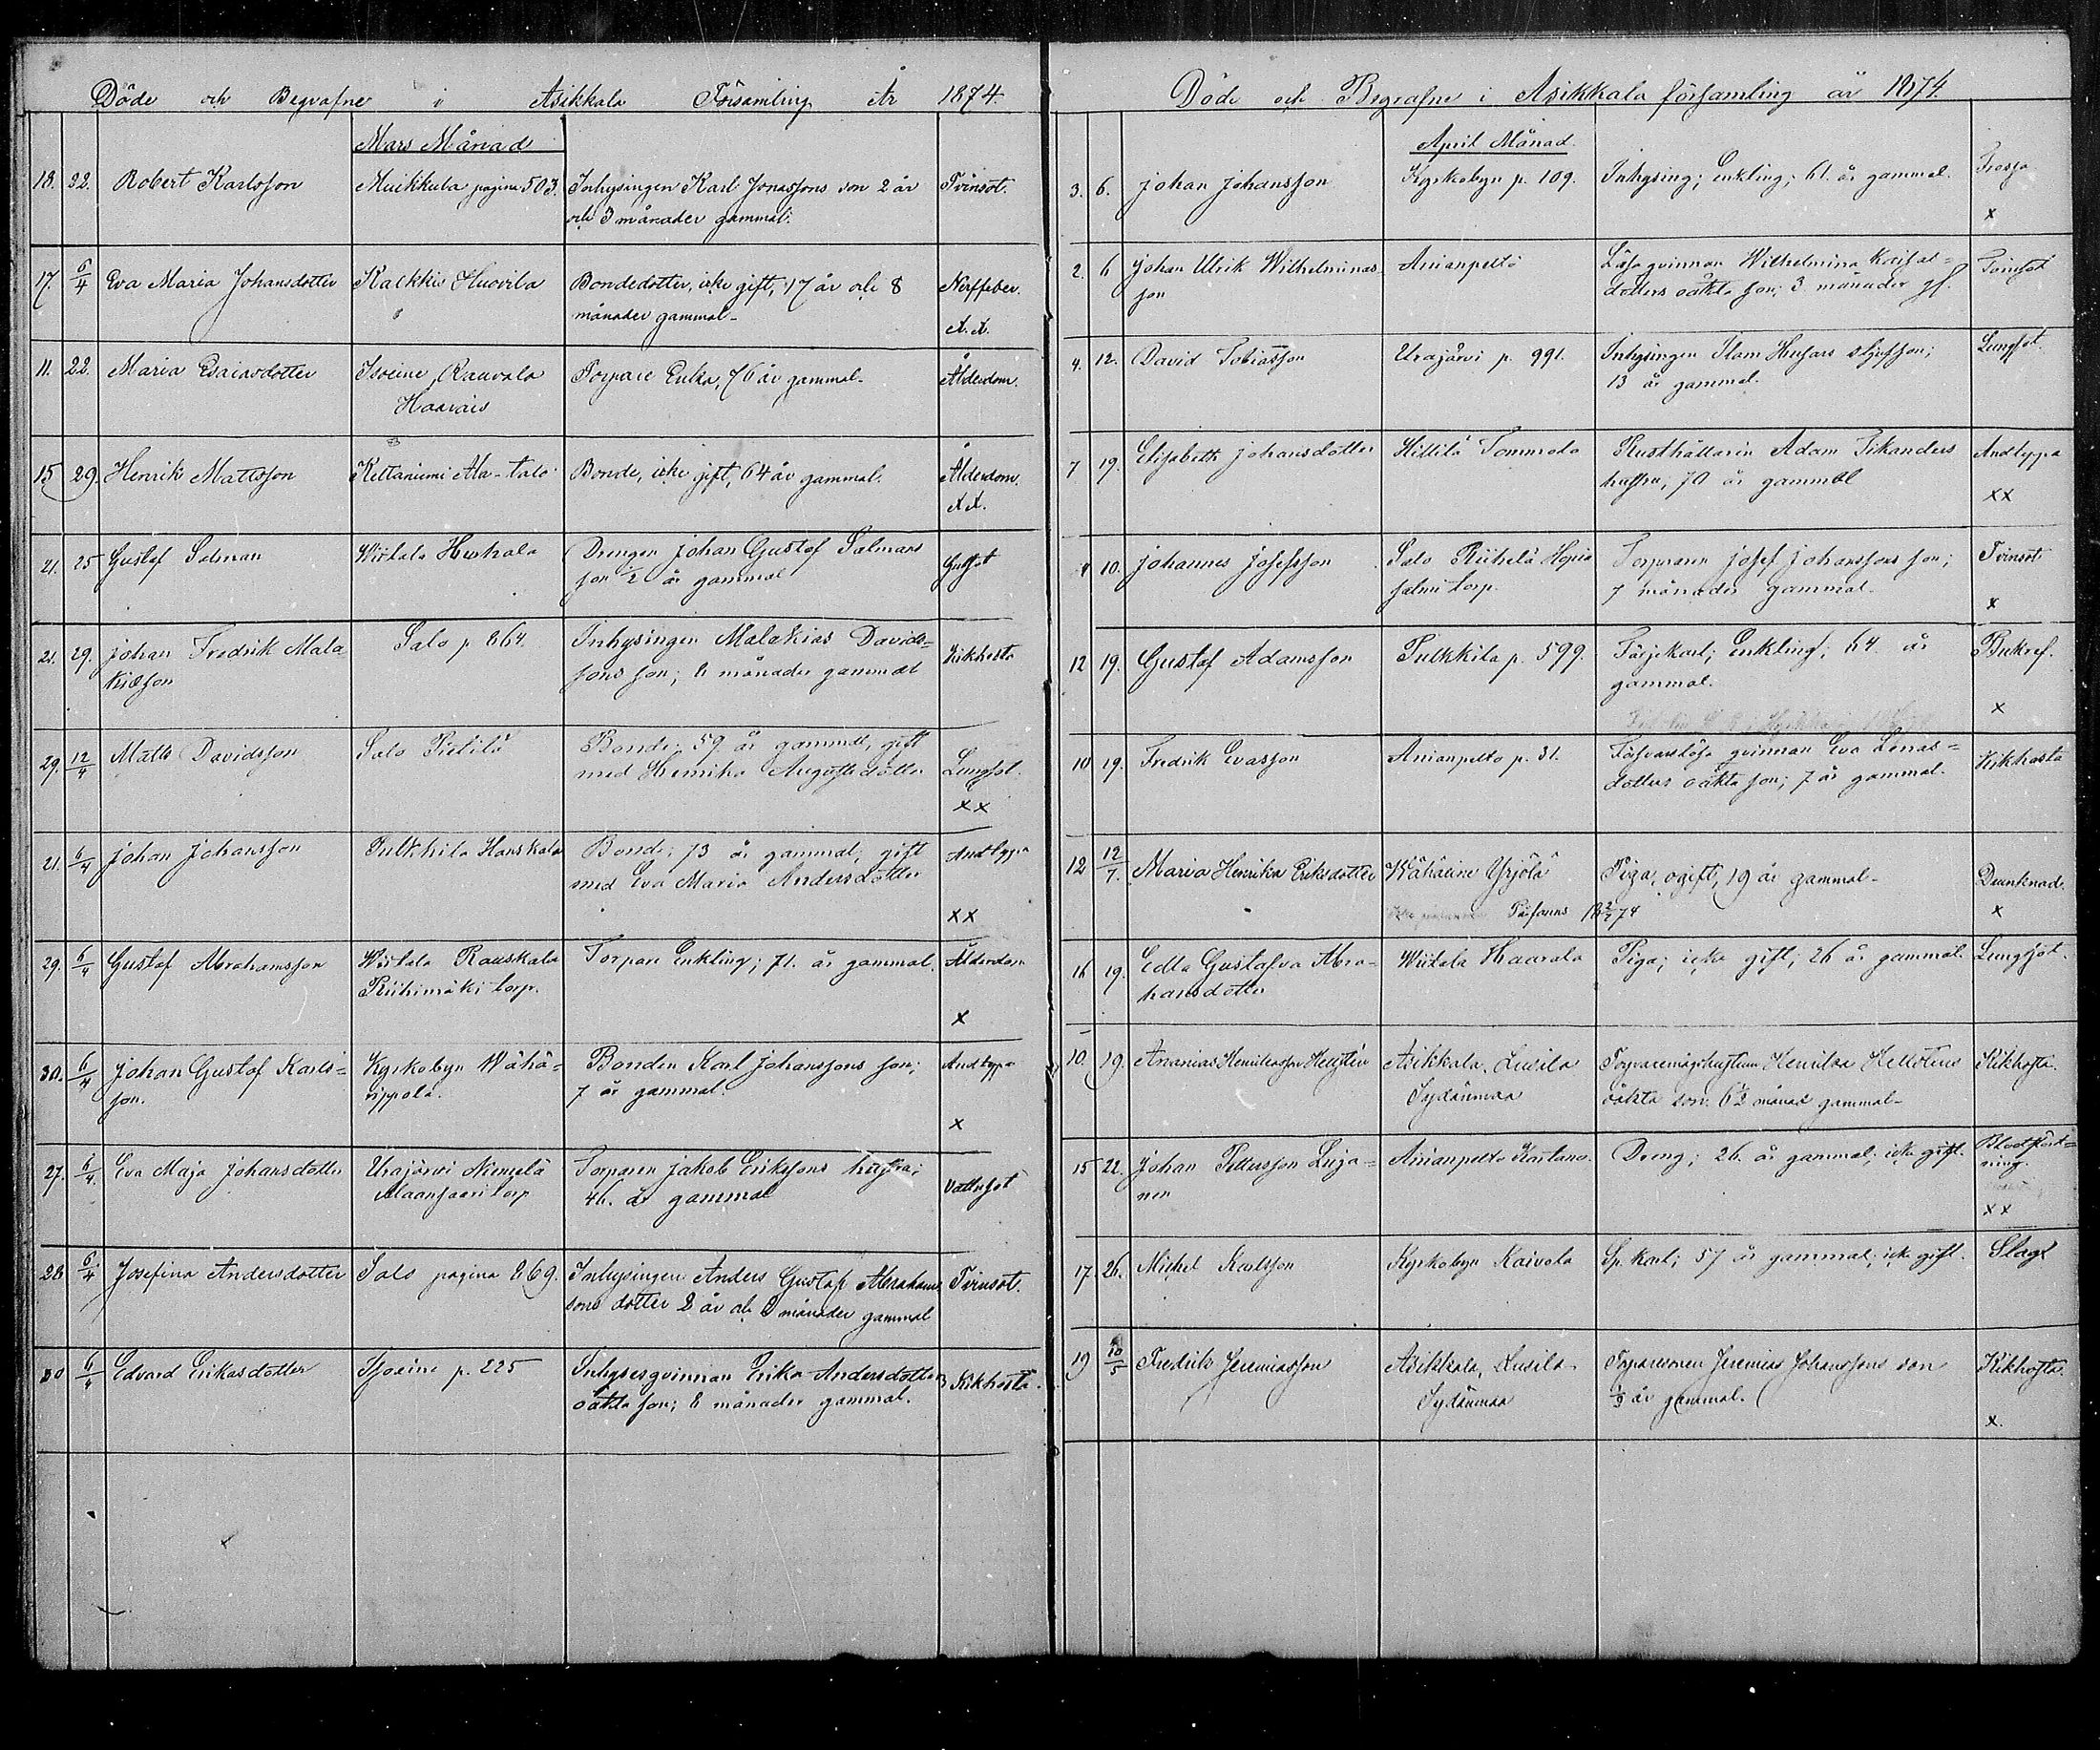 Döde och Begrafne i Asikkala Församling År 1874.
Mars Månad
18. 22. Robert Karlsson Muikkula pagina 503. Inhysingen Karl Jonassons son 2 år Tvinsot.
och 3 månader gammal.
17. 6/4 Eva Maria Johansdotter Kalkkis Huovila Bondedotter, icke gift, 17 år och 8 Nerffeber.
månader gammal
11. 22. Maria Esaiasdotter Isoeine Rauvola Torpare Enka, 76 år gammal. Ålderdom.
15 29. Henrik Mattsson Ala-talo Bonde, icke gift, 64 år gammal. Ålderdom.
21. 25 Gustaf Salman Wistala Drengen Johan Gustaf Salmans Gulsot
son 1/2 år gammal
21. 29. Johan Fredrik Mala= Salo p. 864. Inhysingen Malakias Davids= Kikhosta
kiasson sons son; 8 månader gammal
29. 12/4 Matts Davidsson Salo Bonde; 59 år gammal, gift Lungsot.
med Henrika Augustsdotter
xx
21. 6/4 Johan Johansson Pulkkila Hanskala Bonde; 73 år gammal, gift Andtyppa
med Eva Maria Andersdotter
xx
29. 6/4 Gustaf Abrahamsson Wistala Rauskala Torpare Enkling; 71. år gammal. Ålderdom
Riihimäki torp.
x
30. 6/4 Johan Gustaf Karls= Kyrkobyn Wähä= Bonden Karl Johanssons son; Andtyppa
son. äippölä. 7 år gammal.
x
27. 6/4. Eva Maja Johansdotter Urajärvi Torparen Jakob Erikssons hustru; Vattusot
torp 46. år gammal
28 6/4 Josefina Andersdotter Salo pagina 869. Inhysingen Anders Gustaf Abrahams Tvinsot.
sons dotter 2 år och 8 månader gammal
30 6/4 Edvard Erikasdotter Isoeine p. 225 Inhysesqvinnan Erika Andersdotters Kikhosta.
oäkta son; 8 månader gammal.
Döde och Begrafne i Asikkala församling år 1874.
April Månad.
3. 6. Johan Johansson Kyrkobyn p. 109. Inhysing; enkling; 61. år gammal. Frossa
x
2. 6 Johan Ulrik Wilhelminas Anianpelto Lösa qvinnan Wilhelmina Tvinsot
son dotters oäkta son; 3 månader gl.
4. 12. David Tobiasson Urajärvi p. 991. Inhysingen styfson; Lungsot.
13 år gammal.
7 19. Elisabeth Johansdotter Hillilä Tommola Rusthållaren Adam Sikanders Andtyppa
hustru, 70 år gammal
xx
4 10. Johannes Josefsson Salo Riihelä Torparen Josef Johanssons son; Tvinsot
salmi torp. 7 månader gammal.
x
12 19. Gustaf Adamsson Pulkkila p. 599. Enkling; 64. år Bukref.
gammal.
x
10 19. Fredrik Evasson Anianpelto p. 31. Försvarslösa qvinnan Eva Lenas= Kikhosta
dotters oäkta son; 7 år gammal.
12 12/7. Maria Henrika Eriksdotter Kähäeine Yrjölä Piga, ogift, 19 år gammal. Drunknad.
x
16 19. Edla Gustafva Abra= Wistala Haarala Piga; icke gift; 26 år gammal. Lungsot.
hamsdotter
10. 19. Ananias Henrikasson Hellstén Asikkala, Lusila Henrika Hellsténs Kikhosta.
Sydänmaa oäkta son. 6½ månad gammal
15 22. Johan Pettersson Luja= Anianpelto Kartano. Dreng; 26. år gammal, icke gift. Blodstört=
nen ning.
xx
17. 26. Michel Karlsson Kyrkobyn Kaivola Sp. karl; 57 år gammal, icke gift. Slag
19 10/5 Fredrik Jeremiasson Asikkala, Lusila Torparesonen Jeremias Johanssons son Kikhosta
Sydänmaa 1/3 år gammal.
x.